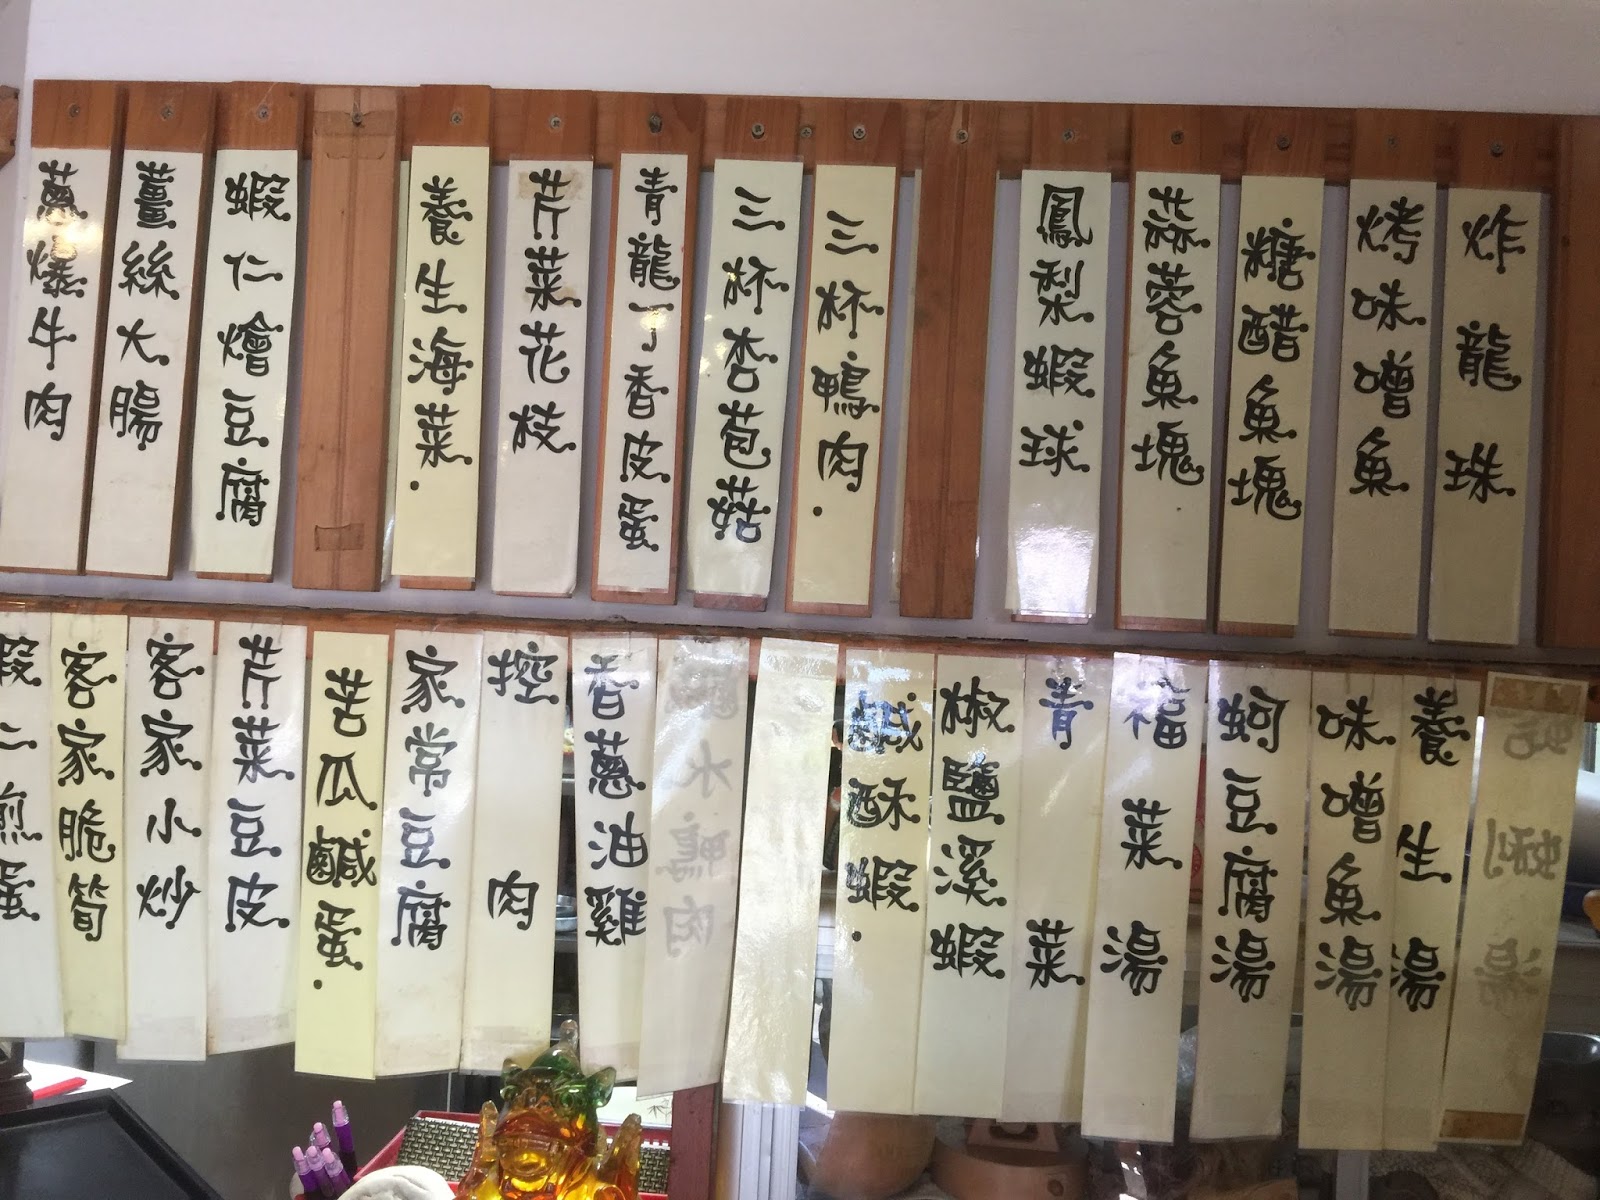 炸龍珠
烤味噌魚
糖醋魚塊
蒜蓉魚塊
鳳梨蝦球
三杯鴨肉.
三杯杏苞菇
青龍丁香皮蛋
芹菜花枝
養生海菜.
蝦仁燴豆腐
薑絲大腸
蔥爆牛肉
養生湯
味噌魚湯
蚵豆腐湯
福菜湯
青菜
椒鹽溪蝦
鹹酥蝦.
水鴨肉
香蔥油雞
控肉
家常豆腐
苦瓜鹹蛋.
芹菜豆皮
客家小炒
客家脆筍
蝦仁煎蛋